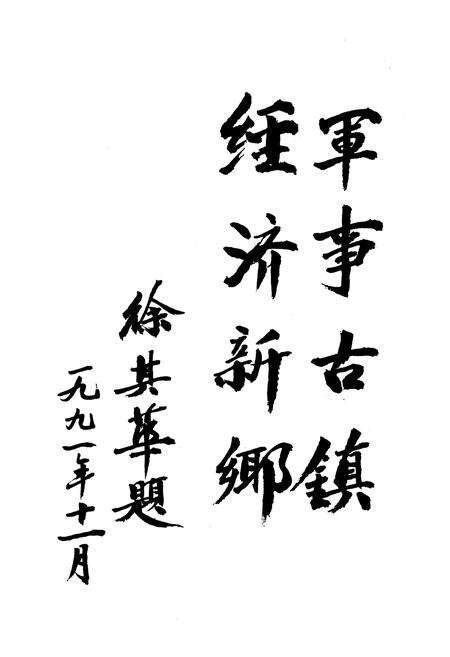 軍事古鎮
經济新鄉
徐其華題
一九九一年十一月